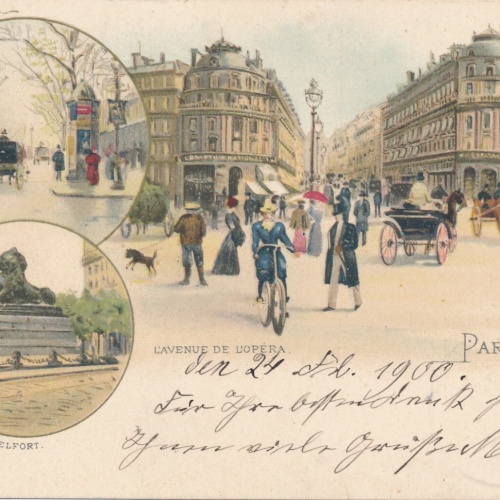 COMPTOIR NATIONAL
L'AVENUE DE L'OPÉRA.
PAR
ELFORT.
den 24 Feb. 1900.
Für Ihre besten dank
Ihnen viele Grüße